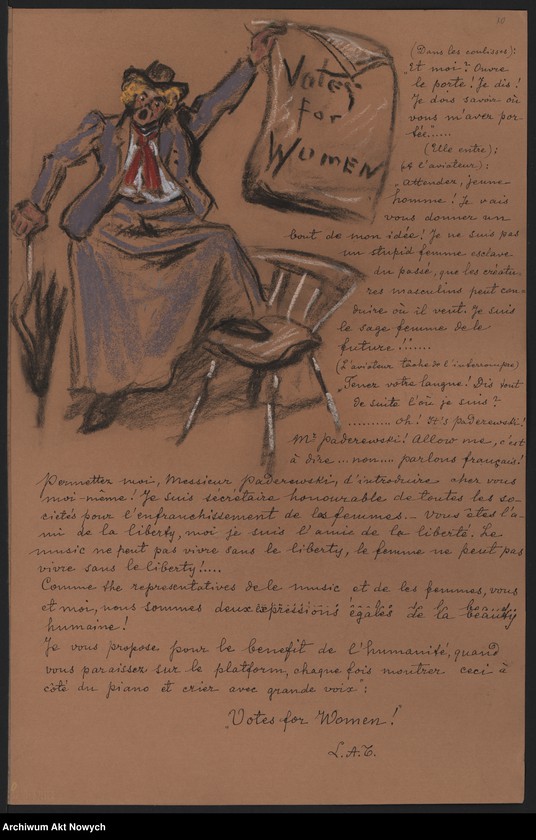 10
Votes
for
Women
(Dans les coulisses):
"Et moi? Ouvre
le porte! Je dis!
Je dois savoir où
vous m'avez por-
tée".....
(Elle entre);
(à l'aviateur):
"Attender, jeune
homme! Je vais
vous donner un
bout de mon idée! Je ne suis pas
un stupid femme esclave
du passé, que les créatu-
res masculins peut con-
duire où il vent. Je suis
le sage femme de le
future!"......
(L'aviateur tâche de l'interrompre)
"Tenez votre langue! Dis tout
de suite l'où je suis?
.......... Oh! It's paderewski!
Mr paderewski! Allow me, c'est
à dire ... non.... parlons français!
Permettez moi, Messieur paderewski, d'introduire cher vous
moi-même! Je suis secrétaire honourable de toutes les so-
ciétés pour l'enfranchissement de les femmes. – Vous êtes l'a-
mi de la liberty, moi je suis l'amie de la liberté. Le
music ne peut pas vivre sans le liberty, le femme ne peut pas
vivre sans le liberty!....
Comme the representatives de le music et de les femmes, vous
et moi, nous sommes deux expressions égales de la beauty
humaine!
Je vous propose pour le benefit de l'humanité, quand
vous paraissez sur le platform, chaque fois montrer ceci à
côté du piano et crier avec grande voix":
"Votes for Women!"
L.A.T.
Archiwum Akt Nowych